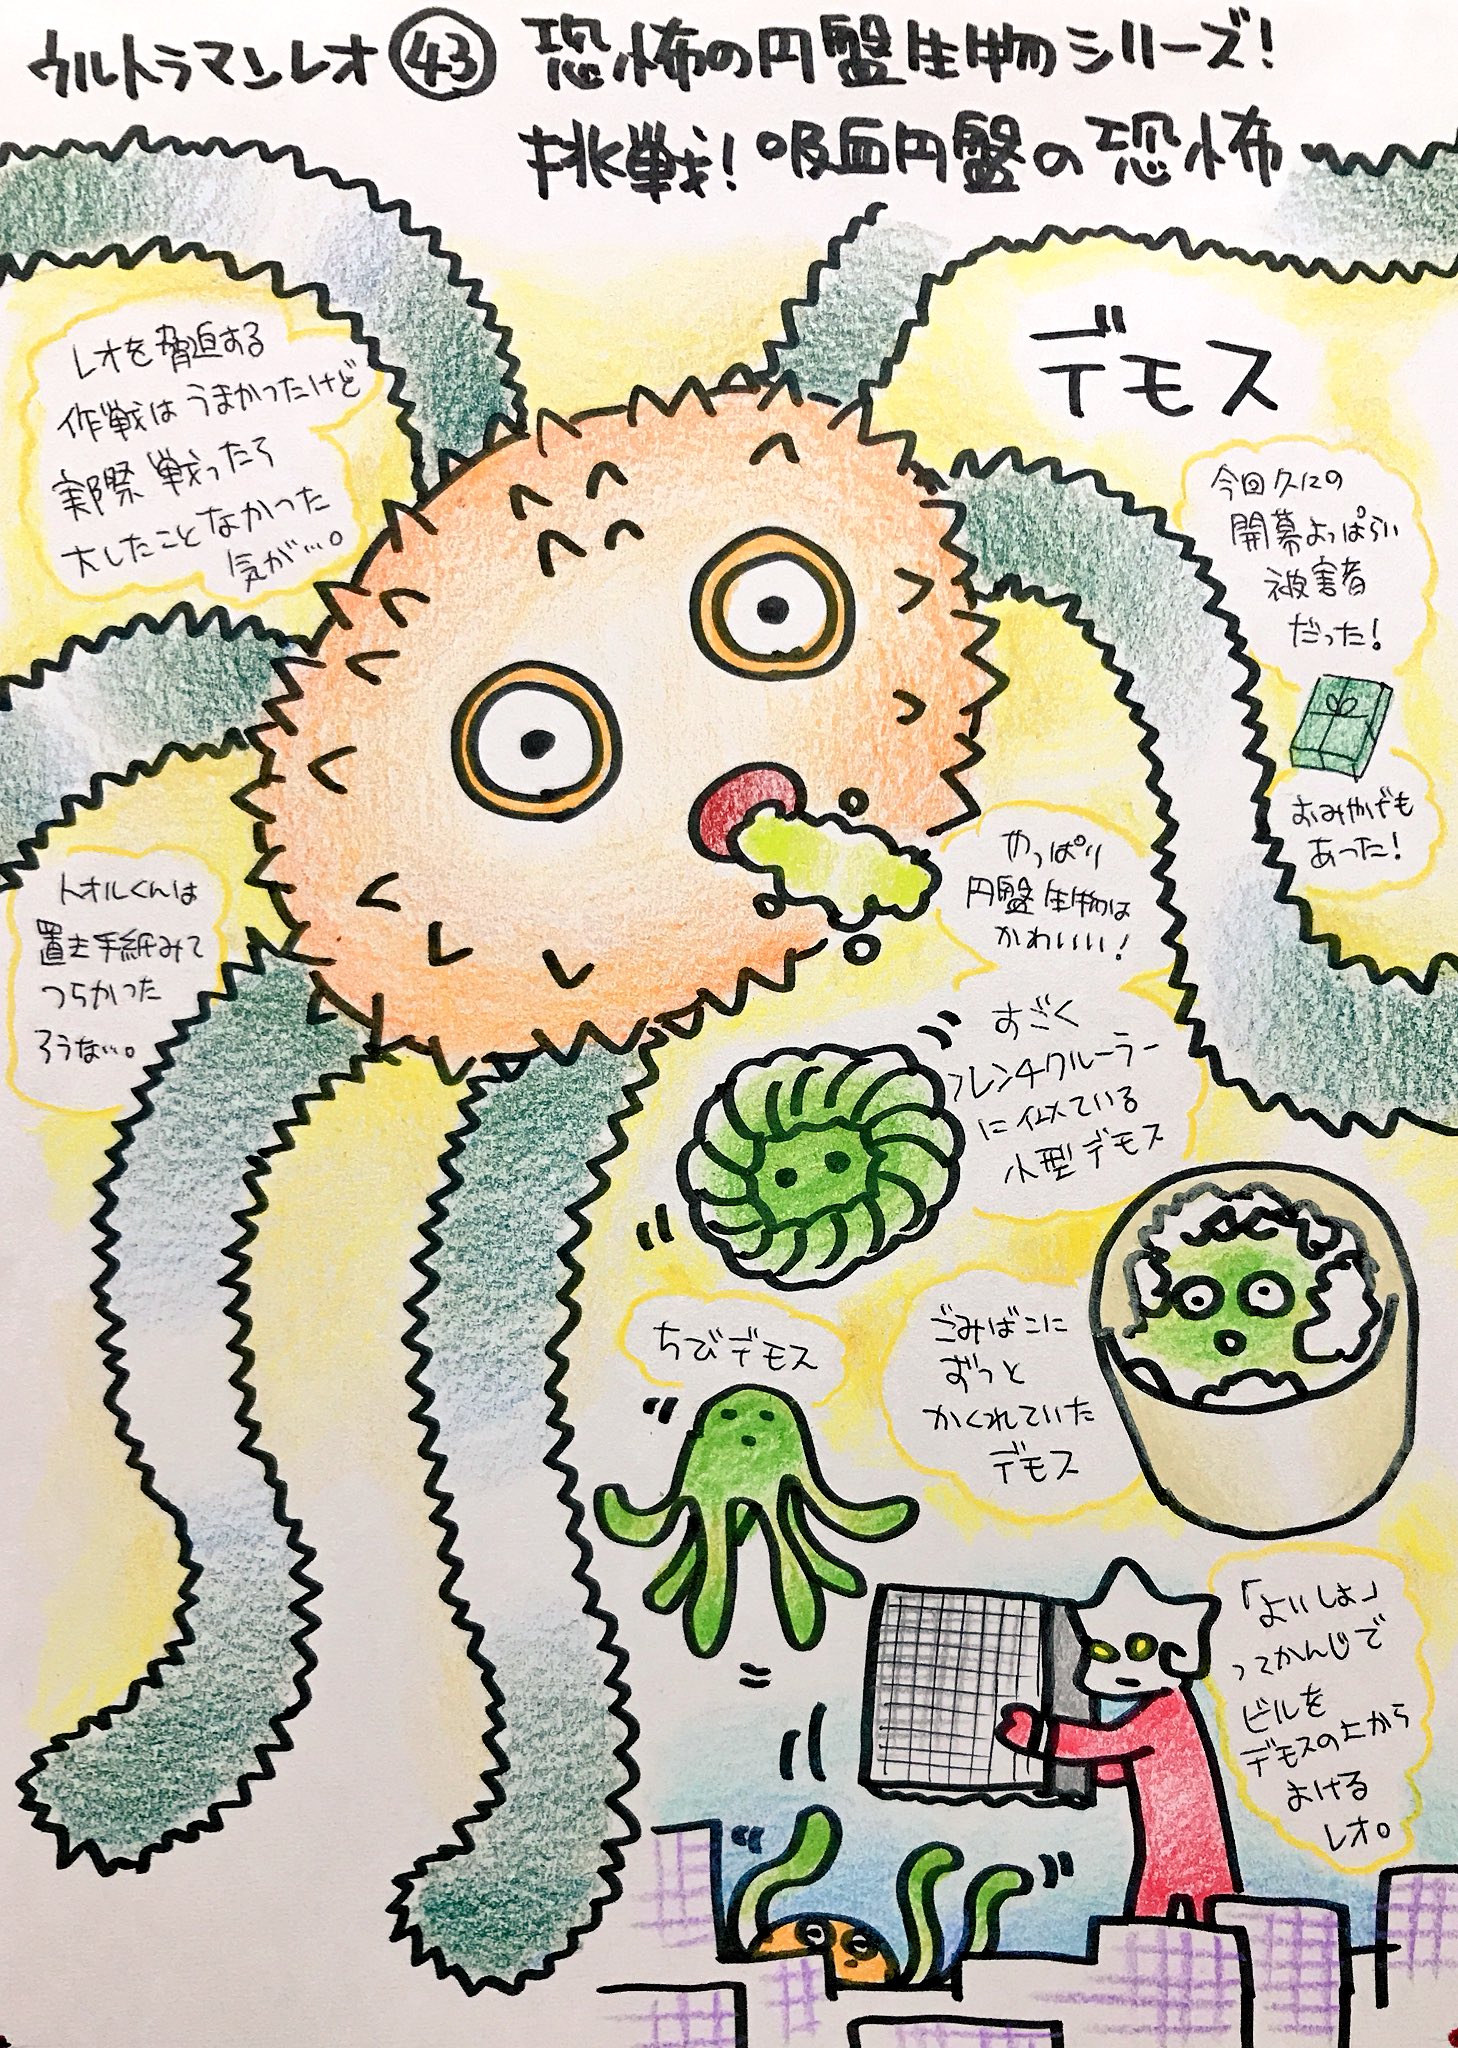 ウルトラマンレオ ㊸ 恐怖の円盤生物シリーズ!
挑戦!吸血円盤の恐怖
デモス
レオを脅迫する
作戦はうまかったけど
実際戦ったら
大したことなかった
気が…。
今回久々の
開幕よっぱらい
被害者
だった!
おみやげも
あった!
トオルくんは
置き手紙みて
つらかった
ろうな…。
やっぱり
円盤生物は
かわいい!
すごく
フレンチクルーラー
に似ている
小型デモス
ちびデモス
ごみばこに
ずっと
かくれていた
デモス
「よいしょ」
ってかんじで
ビルを
デモスの上から
よける
レオ。